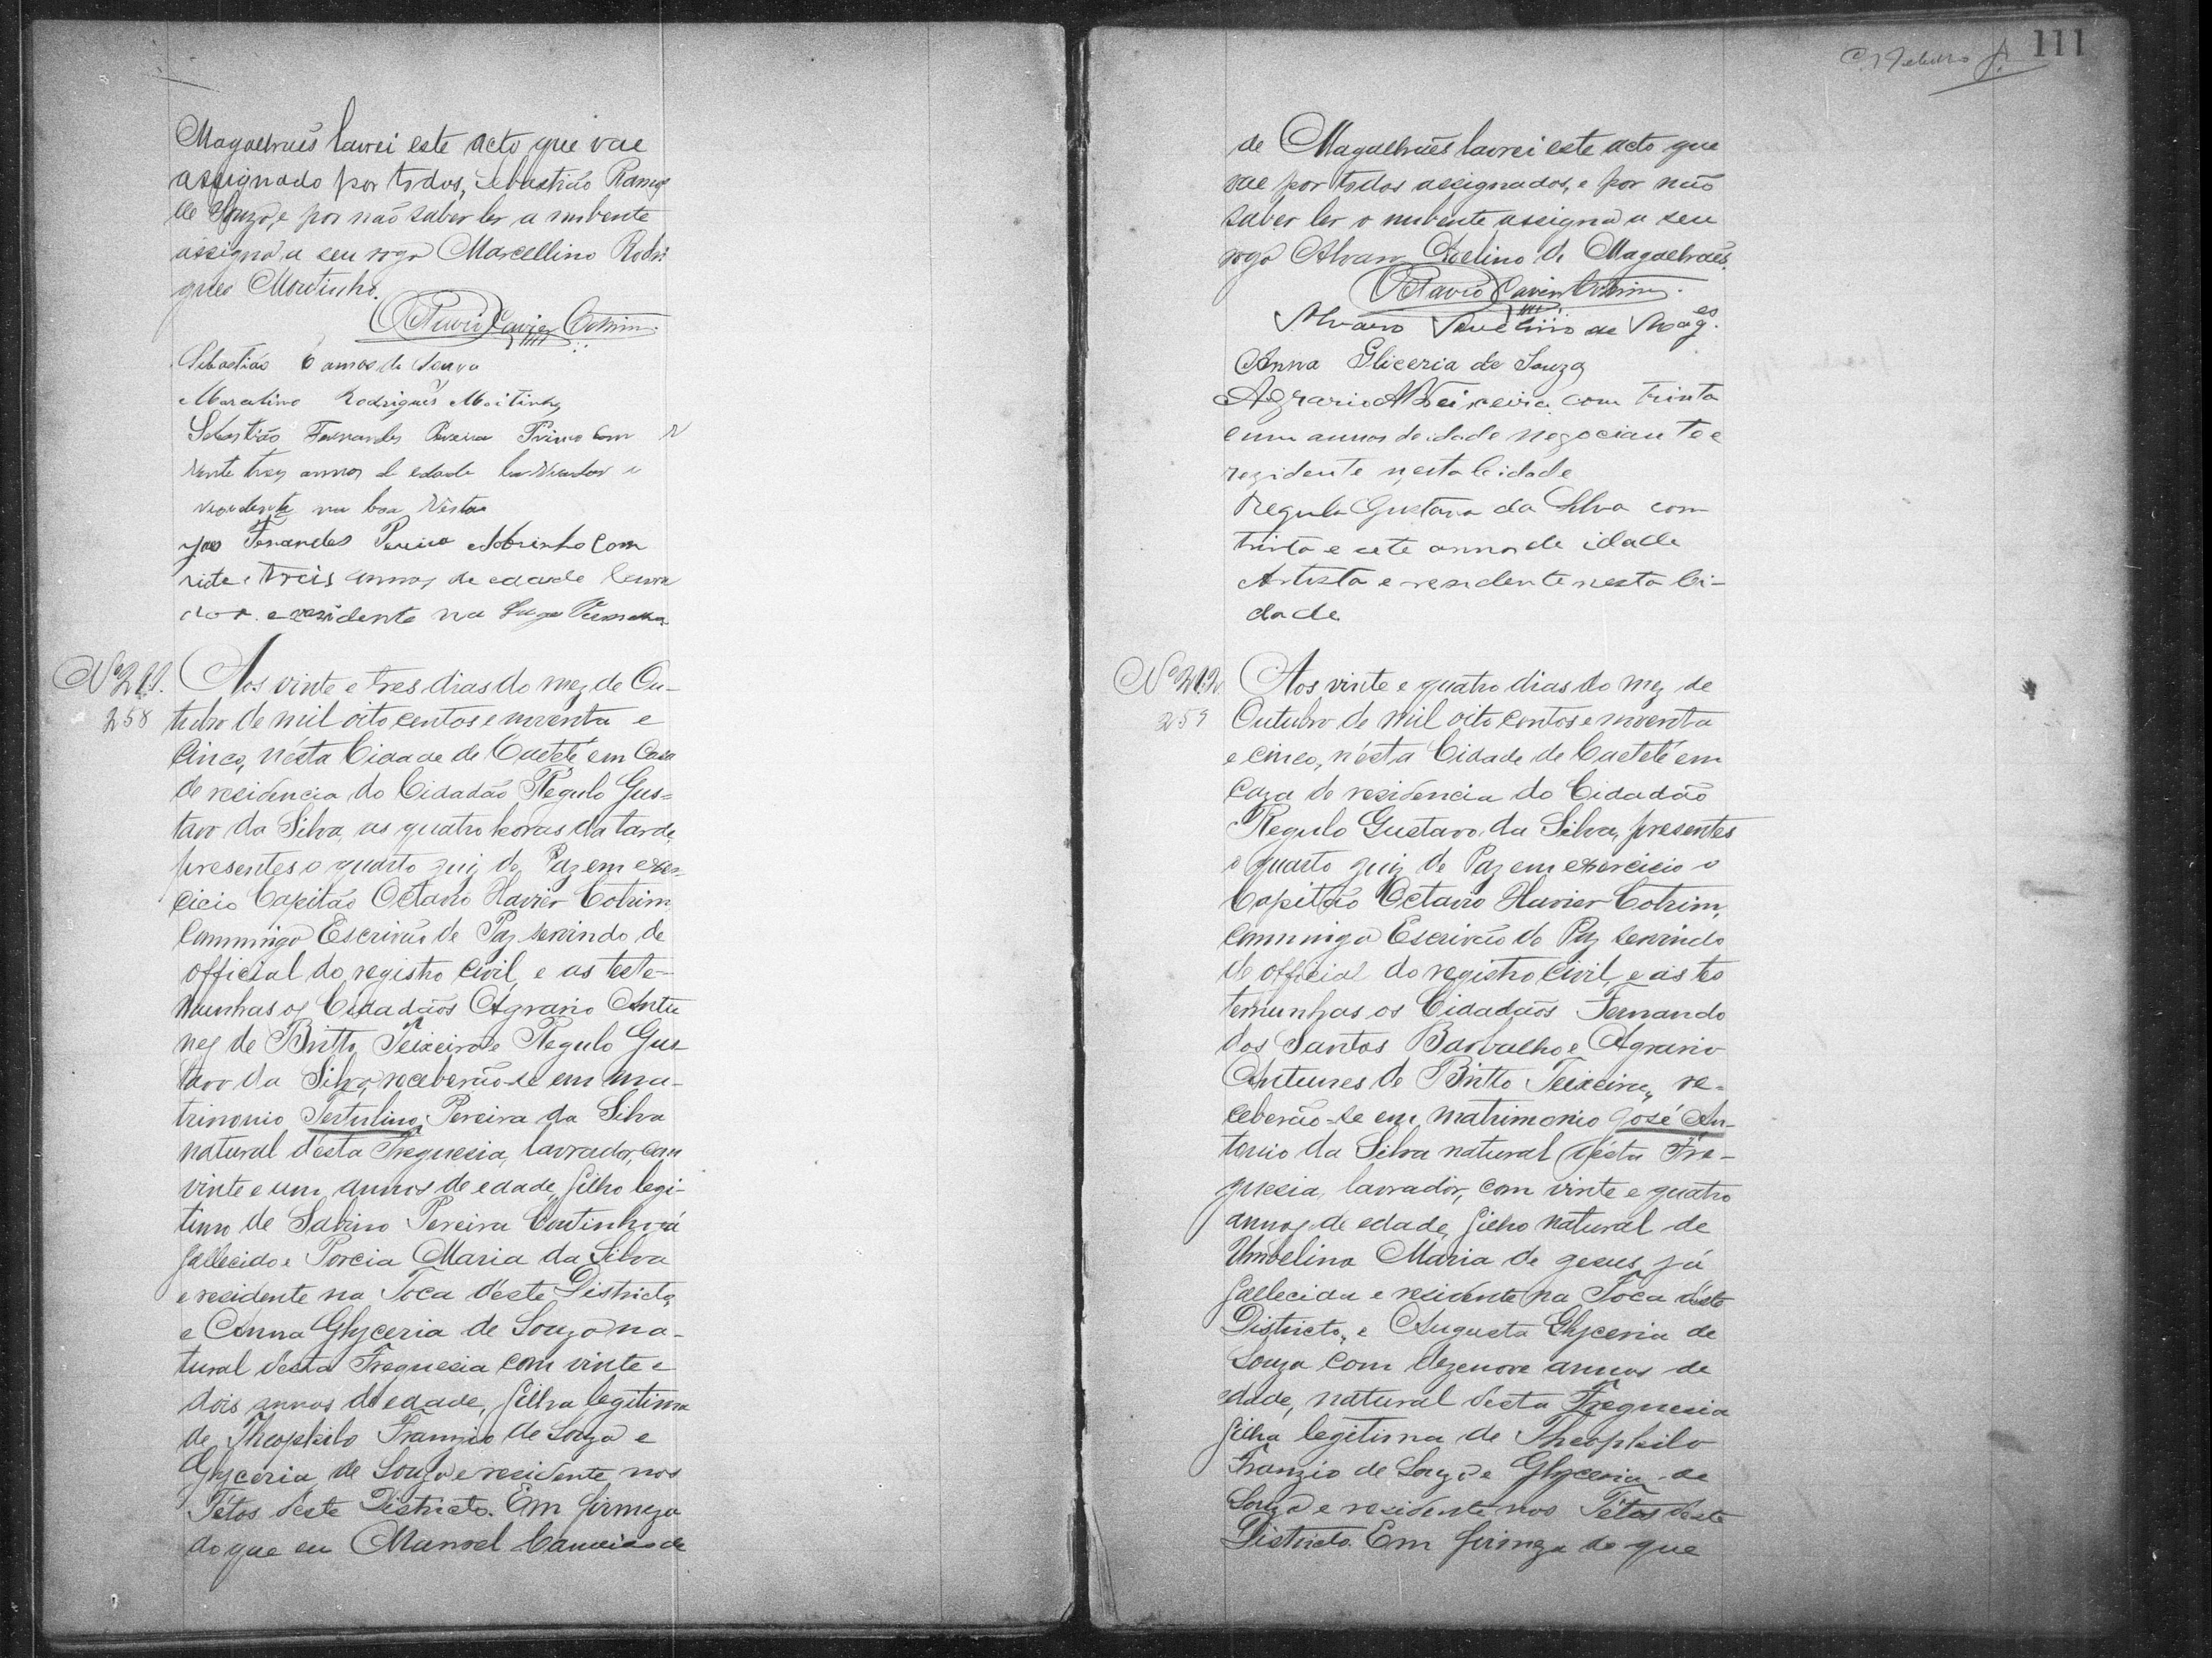 Magalhães lavrei este acto que vae
assignado por todos, Sebastião Ramos
de Souza, e por não saber ler a nubente
assigna a seu rogo Marcellino Rodri
gues Moutinho.
Octavio Xavier Cotrim.
Sebastião Ramos de Souza
Marcelino Rodrigues Moitinho
Sebastião Fernandes Pereira Primo com
vinte trez annos de edade lavrador e
rezidente na boa Vista
João Fernandes Pereira Sobrinho com
vinte e treis annos de edade lavra
dor e rezidente na Lagoa
Nº 211.
258
Aos vinte e tres dias do mez de Ou-
tubro de mil oito centos e noventa e
cinco, nésta Cidade de Caeteté em Casa
de residencia do Cidadão Regulo Gus-
tavo da Silva, as quatro horas da tarde,
presentes o quarto juiz de Paz em exer-
cicio Capitão Octavio Xavier Cotrim
Commigo Escrivão de Paz servindo de
official do registro Civil, e as teste-
munhas os Cidadãos Agrario Antu
nes de Britto Teixeira e Regulo Gus-
tavo da Silva, receberão-se em ma-
trimonio Tertulino Pereira da Silva
natural désta Freguesia, lavrador, com
vinte e um annos de edade, filho legi-
timo de Sabino Pereira Coutinho já
fallecido e Porcia Maria da Silva
e residente na Toca déste Districto,
e Anna Glyceria de Souza na-
tural desta Freguesia com vinte e
dois annos de edade, filha legitima
de Theophilo Franzio de Souza e
Glyceria de Souza e residente nos
Tétos déste Districto. Em firmeza
do que eu Manoel Cancio de
C. Tebulro Jr. 111
de Magalhães lavrei este acto que
vae por todos assignados, e por não
saber ler o nubente assigna a seu
rogo Alvaro Avelino de Magalhães.
Octavio Xavier Cotrim.
Alvaro Avelino de Mag.es
Anna Gliceria de Souza
Agrario A B Teixeira com trinta
e um annos de idade negociante e
rezidente nesta Cidade
Regulo Gustavo da Silva com
trinta e sete annos de idade
Artista e residente nesta Ci-
dade
Nº 212.
259
Aos vinte e quatro dias do mez de
Outubro de mil oito centos e noventa
e cinco, nésta Cidade de Caeteté em
Caza de residencia do Cidadão
Regulo Gustavo da Silva, presentes
o quarto juiz de Paz em exercicio o
Capitão Octavio Xavier Cotrim,
commigo Escrivão de Paz servindo
de official do registro Civil, e as tes
temunhas os Cidadãos Fernando
dos Santos Barbalho e Agrario
Antunes de Britto Teixeira, re-
ceberão-se em matrimonio José An-
tonio da Silva natural désta Fre-
guesia, lavrador, com vinte e quatro
annos de edade, filho natural de
Umbelina Maria de Jesus, já
fallecida e residente na Toca déste
Districto, e Augusta Glyceria de
Souza com dezenove annos de
edade, natural desta Freguesia
filha legitima de Theophilo
Franzio de Souza e Glyceria de
Souza e residente nos Tétos déste
Districto. Em firmeza do que